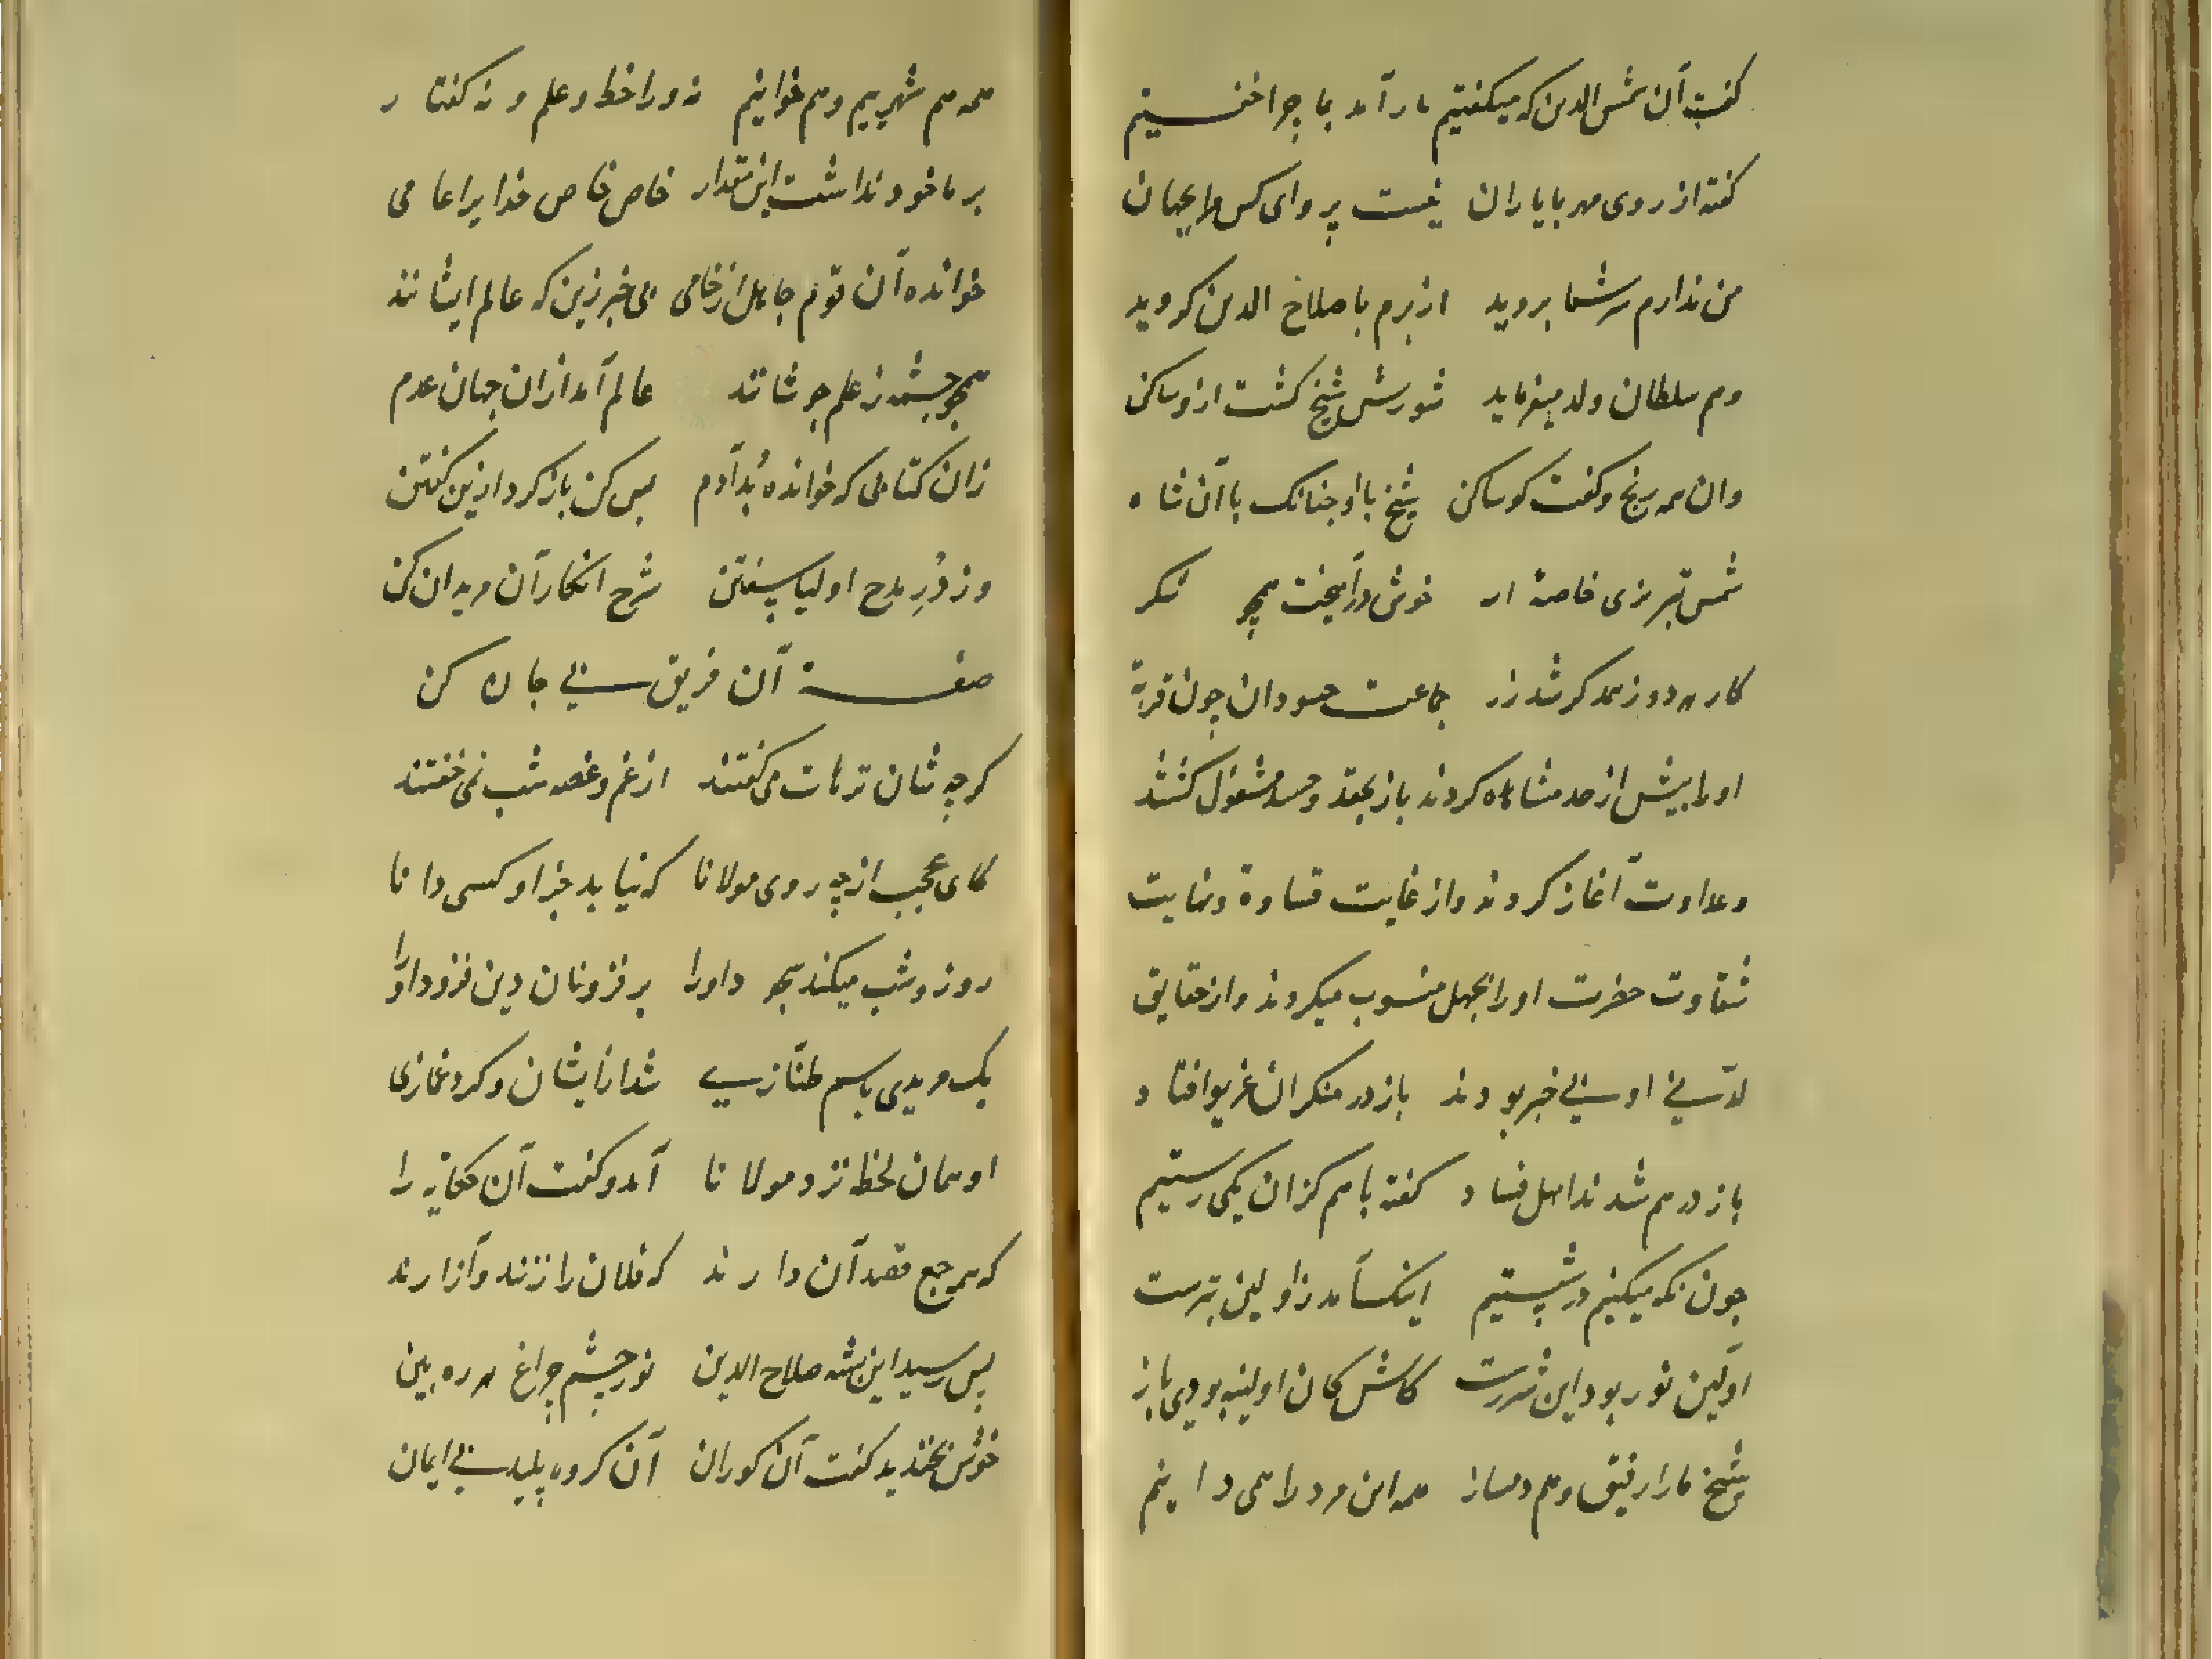 گفت آن شمس الدین که میگفتیم باز آمد بما چرا خفتیم
گفته از روی مهر با یاران نیست پروای کس مرا بجهان
من ندارم سر شما بروید از برم با صلاح الدین گروید
وهم سلطان ولد میفرماید شورش شیخ گشت ازو ساکن
وان همه رنج و گفت گو ساکن شیخ با او چنانک با آن شاه
شمس تبریزی خاصهٔ اله خوش درآمیخت همچو شکر
کار هر دو ز همدگر شد زر جماعت حسودان چون قربة
اورا بیش از حد مشاهده کردند باز بحقد و حسد مشغول گشتند
وعداوت آغاز کردند واز غایت قساوة ونهایت
شقاوت حضرت اورا بجهل منسوب میکردند واز حقایق
لدنی او بی خبر بودند باز در منکران غریو افتاد
باز درهم شدند اهل فساد گفته باهم کزان یکی رستیم
چون نکه میکنیم در شستیم اینکه آمد ز اولین بترست
اولین نور بود این شررست کاش کان اولینه بودی باز
شیخ مارا رفیق وهم دمساز همه این مرد را همی دانیم
همه هم شهرییم وهم خوانیم نه ورا خط وعلم ونه گفتار
بر ما خود نداشت این مقدار خاص خاص خدایرا عامی
خوانده آن قوم جاهل از خامی بی خبر زین که عالم ایشانند
همچو چشمه ز علم جوشانند عالم آمد ازان جهان عدم
زان کتابی که خوانده بُد آدم بس کن باز گرد ازین گفتن
وز دُرِ مدح اولیا سفتن شرح انکار آن مریدان کن
صفت آن فریق بی جان کن
گرچه شان ترهات می گفتند از غم وغصه شب نمی خفتند
کای عجب از چه روی مولانا که نیاید جز او کسی دانا
روز وشب میکند سجود اورا بر فزونان دین فزود اورا
یک مریدی برسم طنازی شد ازایشان وکرد غمازی
او همان لحظه نزد مولانا آمد وگفت آن حکایة را
که همه جمع قصد آن دارند که فلان را زنند وآزارند
پس رسید این بشه صلاح الدین نور چشم چراغ هر ره بین
خوش بخندید گفت آن کوران آن گروه پلید بی ایمان